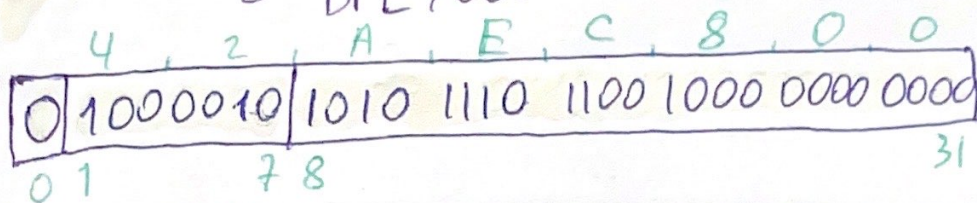 4 , 2 , A , E , C , 8 , 0 , 0
0 1000010 1010 1110 1100 1000 0000 0000
0 1 7 8 31